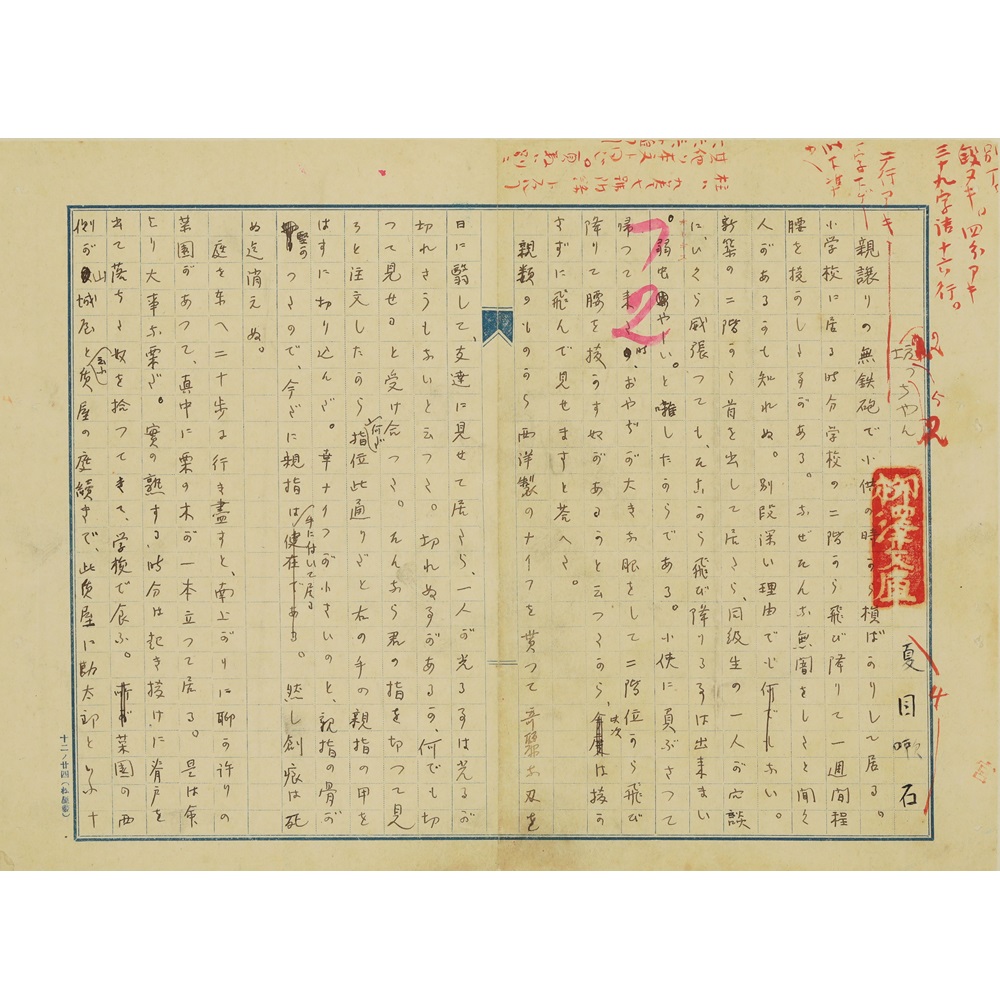 三十九字詰十六行。
二行アキ
坊っちやん
夏目漱石
柳澤文庫
親譲りの無鉄砲で小供の時から損ばかりして居る。
小学校に居る時分学校の二階から飛び降りて一週間程
腰を抜かした事がある。なぜそんな無闇をしたと聞く
人があるかも知れぬ。別段深い理由でも何でもない。
新築の二階から首を出して居たら、同級生の一人が冗談
に、いくら威張つても、そこから飛び降りる事は出来まい
。弱虫やーい。と囃したからである。小使に負ぶさつて
帰つて来た時、おやぢが大きな眼をして二階位から飛び
降りて腰を抜かす奴があるかと云つたから、此次は抜か
さずに飛んで見せますと答へた。
親類のものから西洋製のナイフを貰つて奇麗な刃を
日に翳して、友達に見せて居たら、一人が光る事は光るが
切れさうもないと云つた。切れぬ事があるか、何でも切
つて見せると受け合つた。そんなら君の指を切つて見
ろと注文したから何だ指位此通りだと右の手の親指の甲を
はすに切り込んだ。幸ナイフが小さいのと、親指の骨が
堅かつたので、今だに親指は手に付いて居る。然し創痕は死
ぬ迄消えぬ。
庭を東へ二十歩に行き盡すと、南上がりに聊か許りの
菜園があつて、真中に栗の木が一本立つて居る。是は命
より大事な栗だ。實の熟する時分は起き抜けに脊戸を
出て落ちた奴を拾つてきて、学校で食ふ。菜園の西
側が山城屋と云ふ質屋の庭續きで、此質屋に勘太郎といふ十
十二ノ廿四（松屋製）